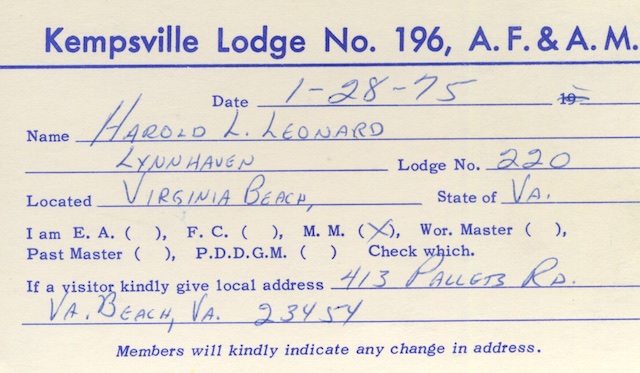 Kempsville Lodge No. 196, A.F.&A.M.
Date 1-28-75 19
Name HAROLD L. LEONARD
LYNNHAVEN Lodge No. 220
Located VIRGINIA BEACH, State of VA.
I am E. A. ( ), F. C. ( ), M. M. (X), Wor. Master ( ),
Past Master ( ), P.D.D.G.M. ( ) Check which.
If a visitor kindly give local address 413 PALLETS RD.
VA. BEACH, VA. 23454
Members will kindly indicate any change in address.